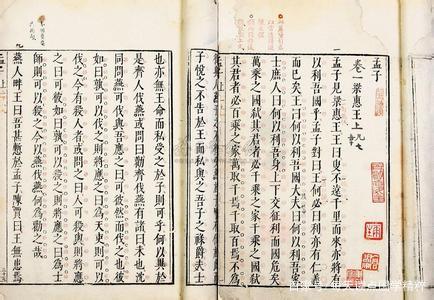 孟子
卷一 梁惠王上
孟子見梁惠王王曰叟不遠千里而來亦將
有以利吾國乎孟子對曰王何必曰利亦有仁義
而已矣王曰何以利吾國大夫曰何以利吾家
士庶人曰何以利吾身上下交征利而國危矣
萬乘之國弒其君者必千乘之家千乘之國弒
其君者必百乘之家萬取千焉千取百焉
子悅之不告於王而私與之吾子之祿爵夫士
也亦無王命而私受之於子則可乎何以異於
是齊人伐燕或問曰勸齊伐燕有諸曰未也沈
同問燕可伐與吾應之曰可彼然而伐之也彼
如曰孰可以伐之則將應之曰為天吏則可以
伐之今有殺人者或問之曰人可殺與則將應
之曰可彼如曰孰可以殺之則將應之曰為士
師則可以殺之今以燕伐燕何為勸之哉
燕人畔王曰吾甚慚於孟子陳賈曰王無患焉